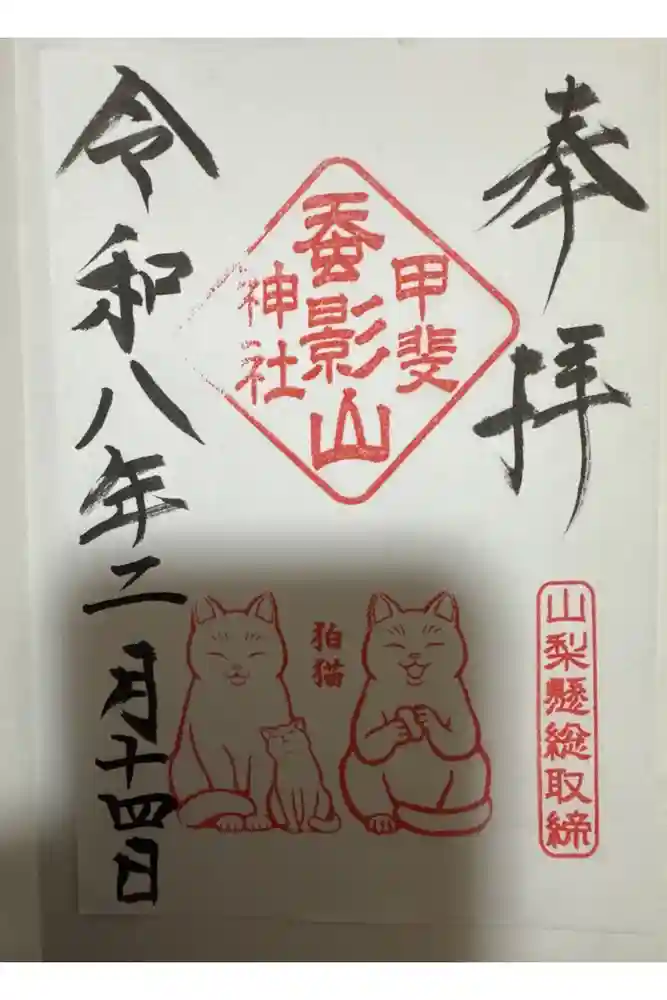 奉拝
甲斐
蚕影山
神社
山梨懸総取締
狛猫
令和八年二月十四日